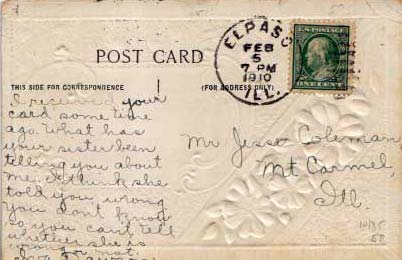 POST CARD
THIS SIDE FOR CORRESPONDENCE
(FOR ADDRESS ONLY)
ELPASO
FEB
5
7 PM
1910
ILL.
U.S. POSTAGE
ONE CENT
I received your
card some time
ago. What has
your sister been
telling you about
me. I think she
told you wrong
you don't know
so you can't tell
whether she is
wrong or not.
Mr Jesse Coleman
Mt Carmel,
Ill.